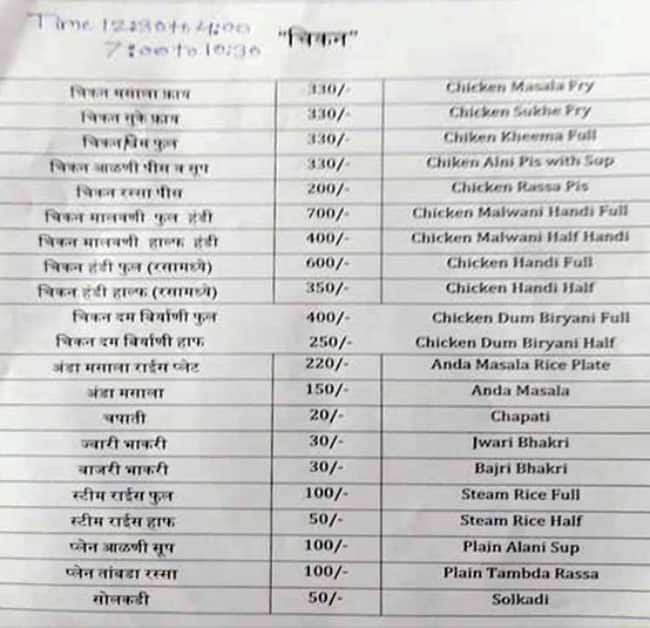 Time 12:30 to 4:00
7:00 to 10:30
"चिकन"
चिकन मसाला फ्राय 330/- Chicken Masala Fry
चिकन सुके फ्राय 330/- Chicken Sukhe Fry
चिकन खिम फुल 330/- Chiken Kheema Full
चिकन आळणी पीस व सूप 330/- Chiken Alni Pis with Sup
चिकन रस्सा पीस 200/- Chicken Rassa Pis
चिकन मालवणी फुल हंडी 700/- Chicken Malwani Handi Full
चिकन मालवणी हाल्फ हंडी 400/- Chicken Malwani Half Handi
चिकन हंडी फुल (रसामध्ये) 600/- Chicken Handi Full
चिकन हंडी हाल्फ (रसामध्ये) 350/- Chicken Handi Half
चिकन दम बिर्याणी फुल 400/- Chicken Dum Biryani Full
चिकन दम बिर्याणी हाफ 250/- Chicken Dum Biryani Half
अंडा मसाला राईस प्लेट 220/- Anda Masala Rice Plate
अंडा मसाला 150/- Anda Masala
चपाती 20/- Chapati
ज्वारी भाकरी 30/- Jwari Bhakri
बाजरी भाकरी 30/- Bajri Bhakri
स्टीम राईस फुल 100/- Steam Rice Full
स्टीम राईस हाफ 50/- Steam Rice Half
प्लेन आळणी सूप 100/- Plain Alani Sup
प्लेन तांबडा रस्सा 100/- Plain Tambda Rassa
सोलकडी 50/- Solkadi